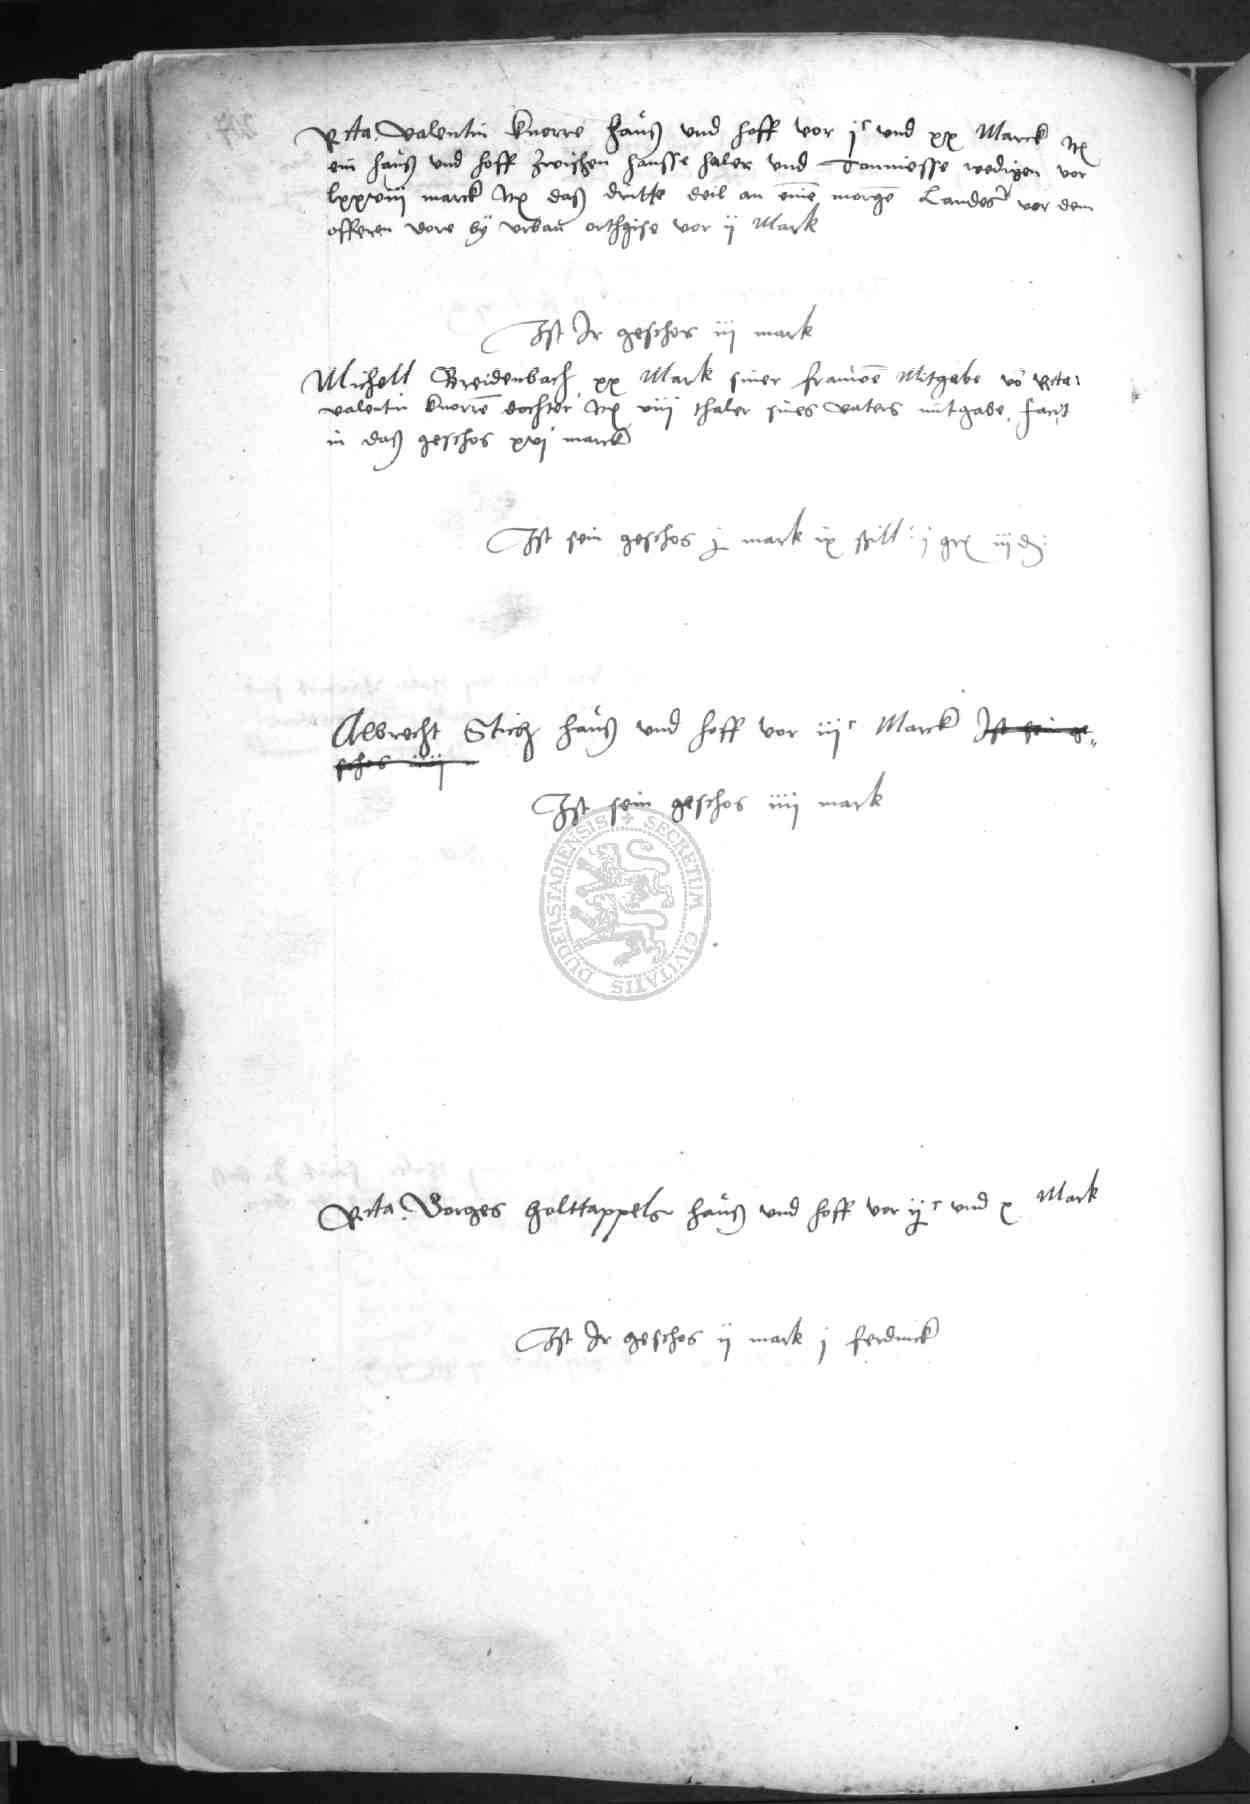 Rcta. Valentin Knorre hauß vnd hoff vor jc vnd xx Marck Itē
ein hauß vnd hoff zwischen hansse haler vnd Tonniesse wedigen vor
lxxviij marck Itē daß drittē deil an eīnē morgē Landes vor dem
offeren dore by vrban orthgise vor ij Mark
Ist Ir geschos iij mark
Michell Breidenbach xx Mark siner frauwē Mitgabe vō Rcta:
valentin knorrē dochter, Itē viij thaler sines vaters mitgabe, facit
in daß geschos xvj marck
Ist sein geschos j mark ix schill: j gr iij d:
Albrecht Stich hauß vnd hoff vor iijc Marck Ist sein ge„
schos iiij
Ist sein geschos iiij mark
SECRETUM CIVITATIS DUDERSTADIENSIS
Rcta. Borges holttappels hauß vnd hoff vor ijc vnd x Mark
Ist Ir geschos ij mark j ferdinck